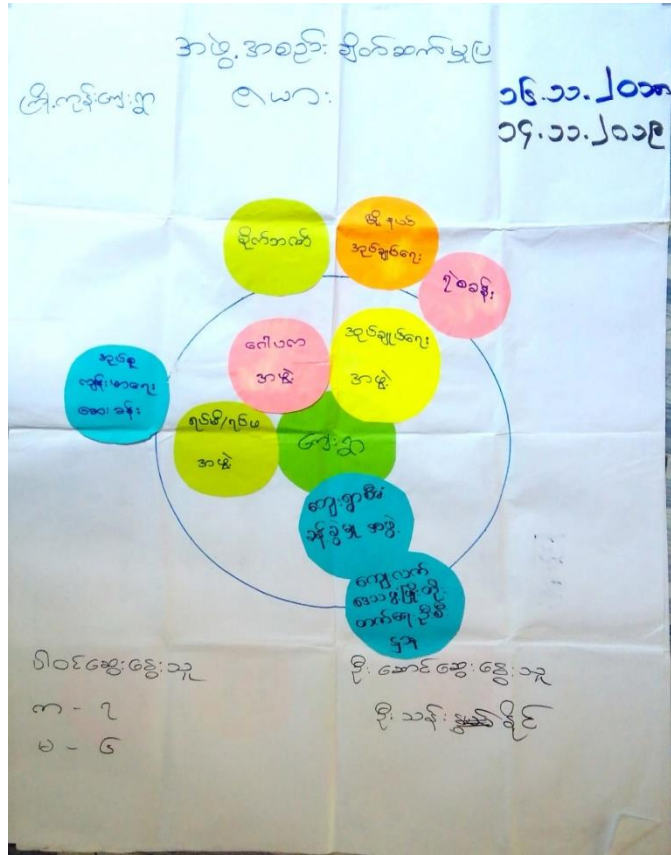 အဖွဲ့အစည်း ချိတ်ဆက်မှုပြ
ကြို့ကုန်းကျေးရွာ
ဇယား
၁၆.၁၁.၂၀၁၈
၁၄.၁၁.၂၀၁၉
စိုက်ဘဏ်
မြို့နယ်
အုပ်ချုပ်ရေး
ရဲစခန်း
ဂေါပက
အဖွဲ့
အုပ်ချုပ်ရေး
အဖွဲ့
အုပ်စု
ကျန်းမာရေး
ဆေးခန်း
ရပ်မိ/ရပ်ဖ
အဖွဲ့
ကျေးရွာ
ကျေးရွာစီမံ
ခန့်ခွဲမှု အဖွဲ့
ကျေးလက်
ဒေသဖွံ့ဖြိုးတိုး
တက်ရေးဦးစီး
ဌာန
ပါဝင်ဆွေးနွေးသူ
ကျ - ၇
မ - ၆
ဦးဆောင်ဆွေးနွေးသူ
ဦးသန်း နိုင်